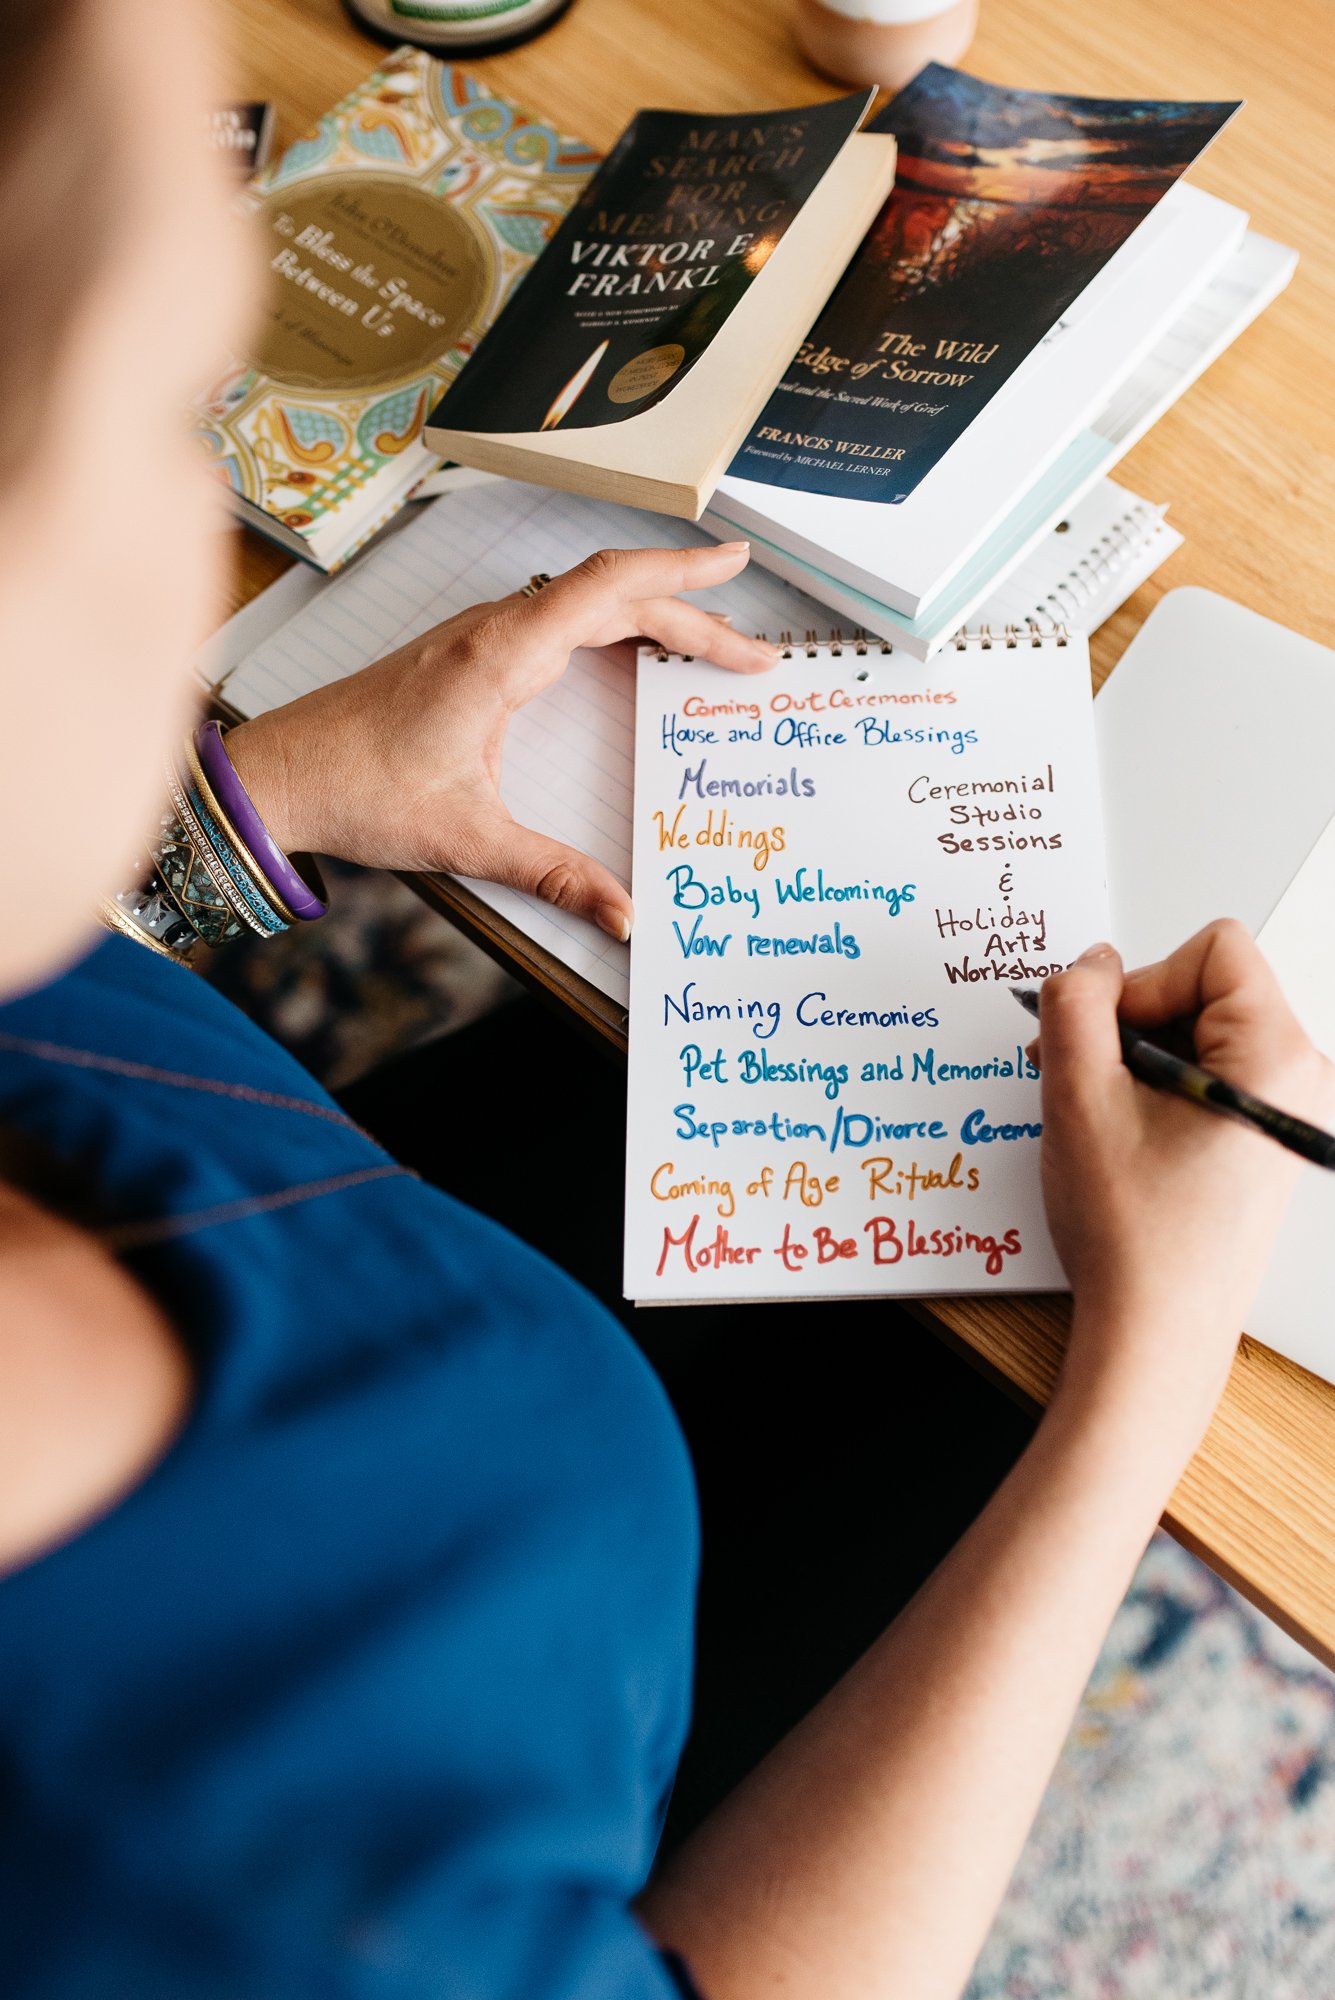 John O'Donohue
To Bless the Space
Between Us
MAN'S
SEARCH
FOR
MEANING
VIKTOR E.
FRANKL
WITH A NEW FOREWORD BY
HAROLD S. KUSHNER
The Wild
Edge of Sorrow
and the Sacred Work of Grief
FRANCIS WELLER
Foreword by MICHAEL LERNER
Coming Out Ceremonies
House and Office Blessings
Memorials
Weddings
Baby Welcomings
Vow renewals
Naming Ceremonies
Pet Blessings and Memorials
Separation/Divorce Ceremo
Coming of Age Rituals
Mother to Be Blessings
Ceremonial
Studio
Sessions
&
Holiday
Arts
Workshops